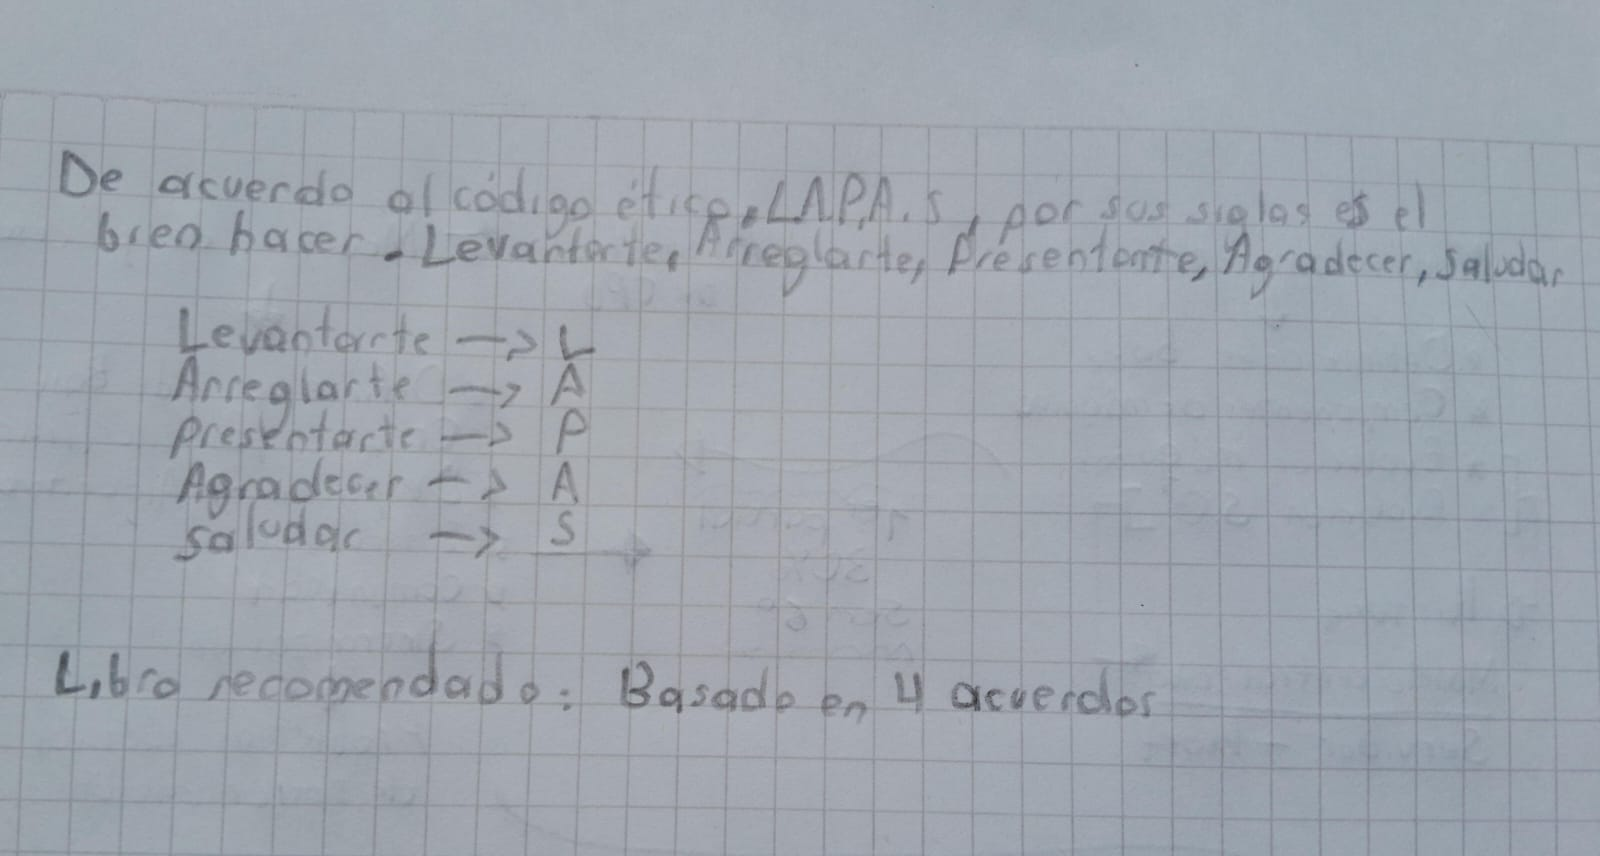 De acuerdo al código ético, L.A.P.A.S, por sus siglas es el
bien hacer. Levantarte, Arreglarte, Presentarte, Agradecer, Saludar
Levantarte → L
Arreglarte → A
presentarte → P
Agradecer → A
saludar → S
Libro recomendado: Basado en 4 acuerdos